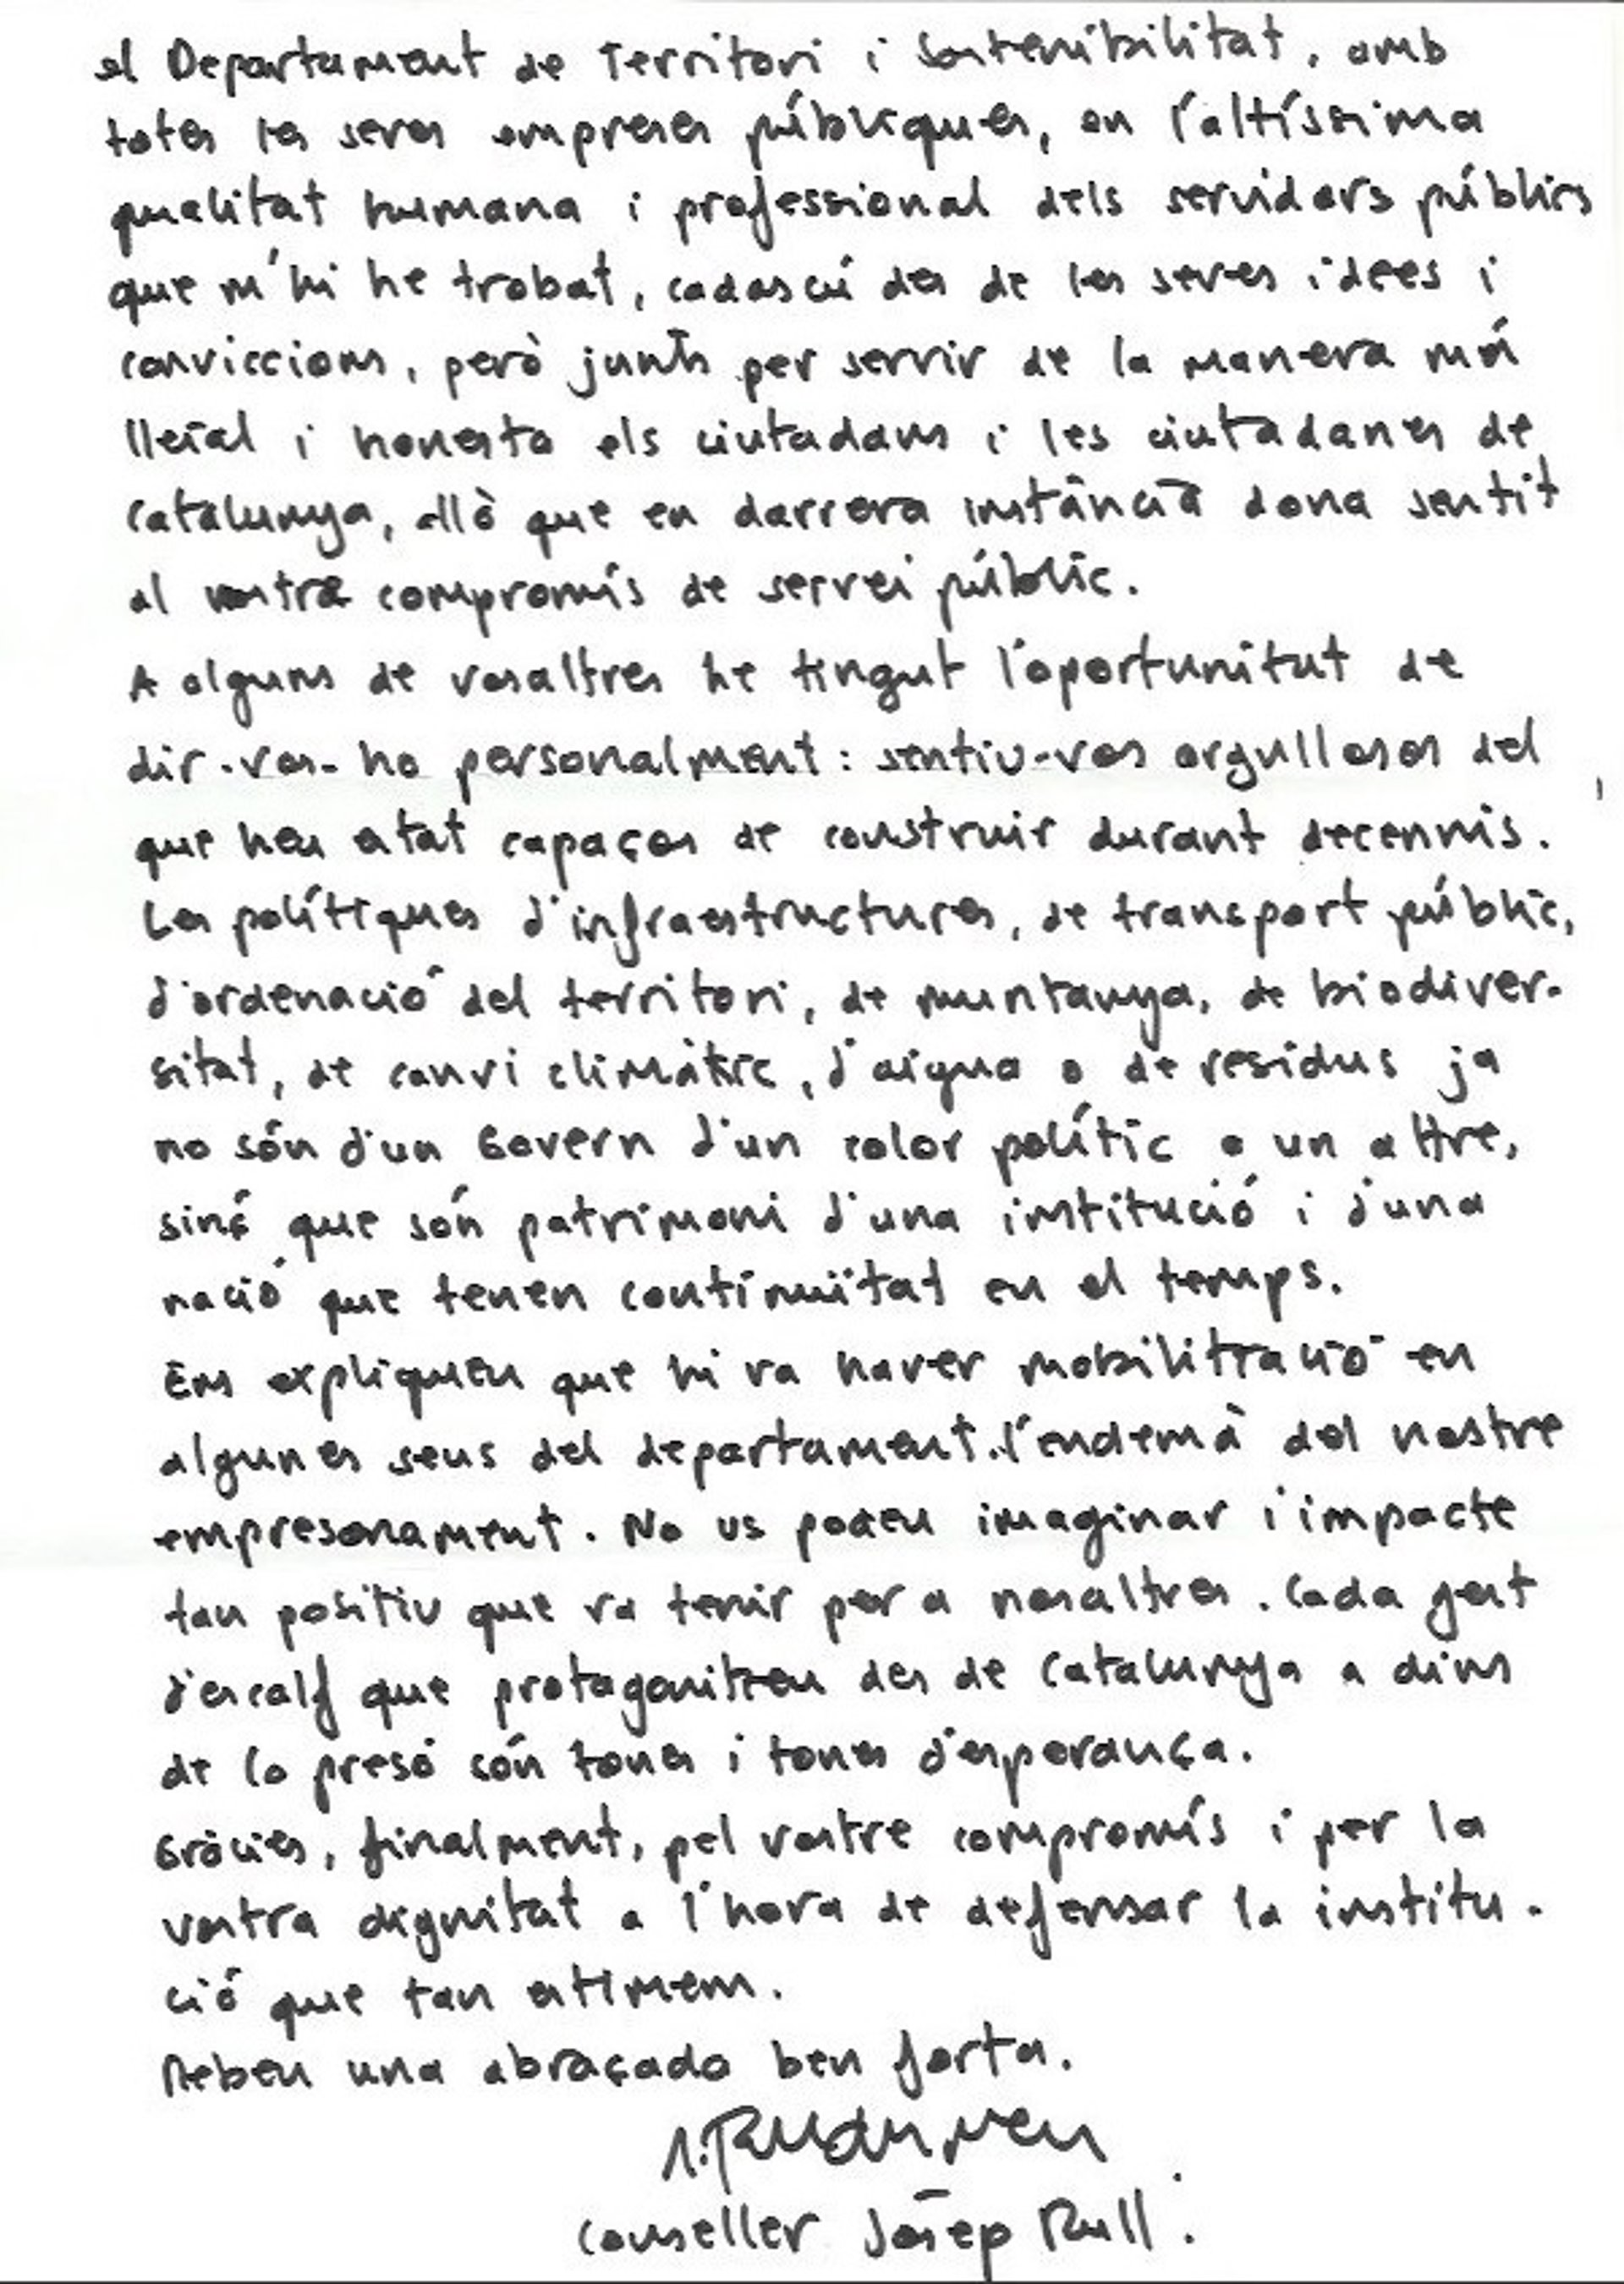 el Departament de Territori i Sostenibilitat, amb
totes les seves empreses públiques, en l'altíssima
qualitat humana i professional dels servidors públics
que m'hi he trobat, cadascú des de les seves idees i
conviccions, però junts per servir de la manera més
lleial i honesta els ciutadans i les ciutadanes de
Catalunya, allò que en darrera instància dona sentit
al vostre compromís de servei públic.
A alguns de vosaltres he tingut l'oportunitat de
dir-vos-ho personalment: sentiu-vos orgullosos del
que heu estat capaços de construir durant decennis.
Les polítiques d'infraestructures, de transport públic,
d'ordenació del territori, de muntanya, de biodiver-
sitat, de canvi climàtic, d'aigua o de residus ja
no són d'un Govern d'un color polític o un altre,
sinó que són patrimoni d'una institució i d'una
nació que tenen continuïtat en el temps.
Ens expliquen que hi va haver mobilització en
algunes seus del departament l'endemà del nostre
empresonament. No us podeu imaginar l'impacte
tan positiu que va tenir per a nosaltres. Cada gest
d'escalf que protagonitzeu des de Catalunya a dins
de la presó són tones i tones d'esperança.
Gràcies, finalment, pel vostre compromís i per la
vostra dignitat a l'hora de defensar la institu-
ció que tan estimem.
Rebeu una abraçada ben forta.
Conseller Josep Rull.